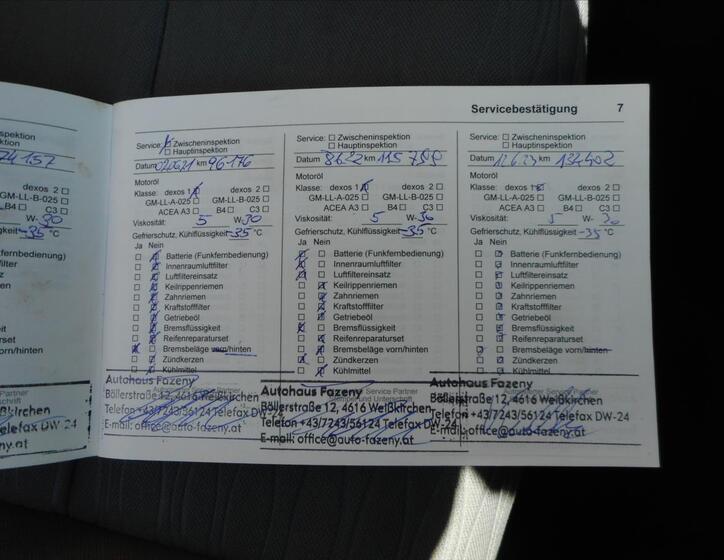 Servicebestätigung 7
spektion
spektion
74 157
dexos 2
GM-LL-B-025
B4 C3
W- 30
gkeit -35 °C
nkfernbedienung)
lfilter
satz
n
er
eit
arset
n/hinten
Service: Zwischeninspektion
Hauptinspektion
Datum 020621 km 96176
Motoröl
Klasse: dexos 1 dexos 2
GM-LL-A-025 GM-LL-B-025
ACEA A3 B4 C3
Viskosität: 5 W- 30
Gefrierschutz, Kühlflüssigkeit -35 °C
Ja Nein
Batterie (Funkfernbedienung)
Innenraumluftfilter
Luftfiltereinsatz
Keilrippenriemen
Zahnriemen
Kraftstofffilter
Getriebeöl
Bremsflüssigkeit
Reifenreparaturset
Bremsbeläge vorn/hinten
Zündkerzen
Kühlmittel
Autohaus Fazeny
Böllerstraße 12, 4616 Weißkirchen
Telefon +43/7243/56124 Telefax DW-24
E-mail: office@auto-fazeny.at
Service: Zwischeninspektion
Hauptinspektion
Datum 8.6.22 km 115 700
Motoröl
Klasse: dexos 1 dexos 2
GM-LL-A-025 GM-LL-B-025
ACEA A3 B4 C3
Viskosität: 5 W- 30
Gefrierschutz, Kühlflüssigkeit -35 °C
Ja Nein
Batterie (Funkfernbedienung)
Innenraumluftfilter
Luftfiltereinsatz
Keilrippenriemen
Zahnriemen
Kraftstofffilter
Getriebeöl
Bremsflüssigkeit
Reifenreparaturset
Bremsbeläge vorn/hinten
Zündkerzen
Kühlmittel
Autohaus Fazeny
Böllerstraße 12, 4616 Weißkirchen
Telefon +43/7243/56124 Telefax DW-24
E-mail: office@auto-fazeny.at
Service: Zwischeninspektion
Hauptinspektion
Datum 12.6.23 km 134402
Motoröl
Klasse: dexos 1 dexos 2
GM-LL-A-025 GM-LL-B-025
ACEA A3 B4 C3
Viskosität: 5 W- 30
Gefrierschutz, Kühlflüssigkeit -35 °C
Ja Nein
Batterie (Funkfernbedienung)
Innenraumluftfilter
Luftfiltereinsatz
Keilrippenriemen
Zahnriemen
Kraftstofffilter
Getriebeöl
Bremsflüssigkeit
Reifenreparaturset
Bremsbeläge vorn/hinten
Zündkerzen
Kühlmittel
Autohaus Fazeny
Böllerstraße 12, 4616 Weißkirchen
Telefon +43/7243/56124 Telefax DW-24
E-mail: office@auto-fazeny.at